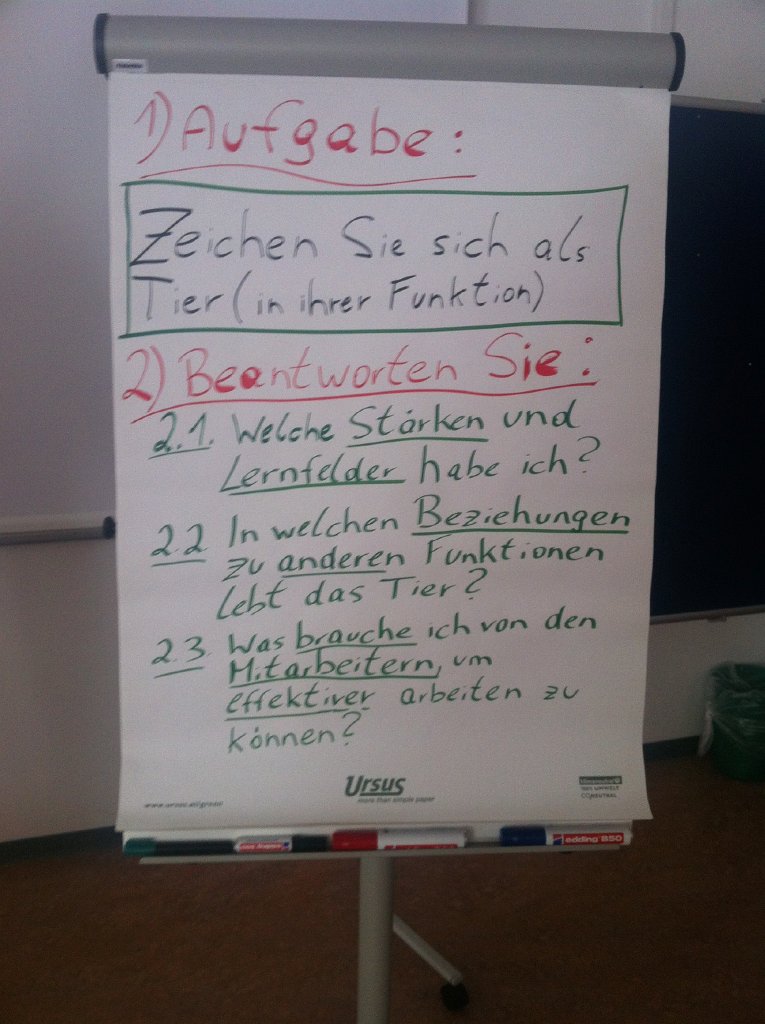 1) Aufgabe:
Zeichen Sie sich als
Tier (in ihrer Funktion)
2) Beantworten Sie:
2.1. Welche Stärken und
Lernfelder habe ich?
2.2 In welchen Beziehungen
zu anderen Funktionen
lebt das Tier?
2.3. Was brauche ich von den
Mitarbeitern, um
effektiver arbeiten zu
können?
Ursus
more than simple paper
100% UMWELT
CO2NEUTRAL
edding 850